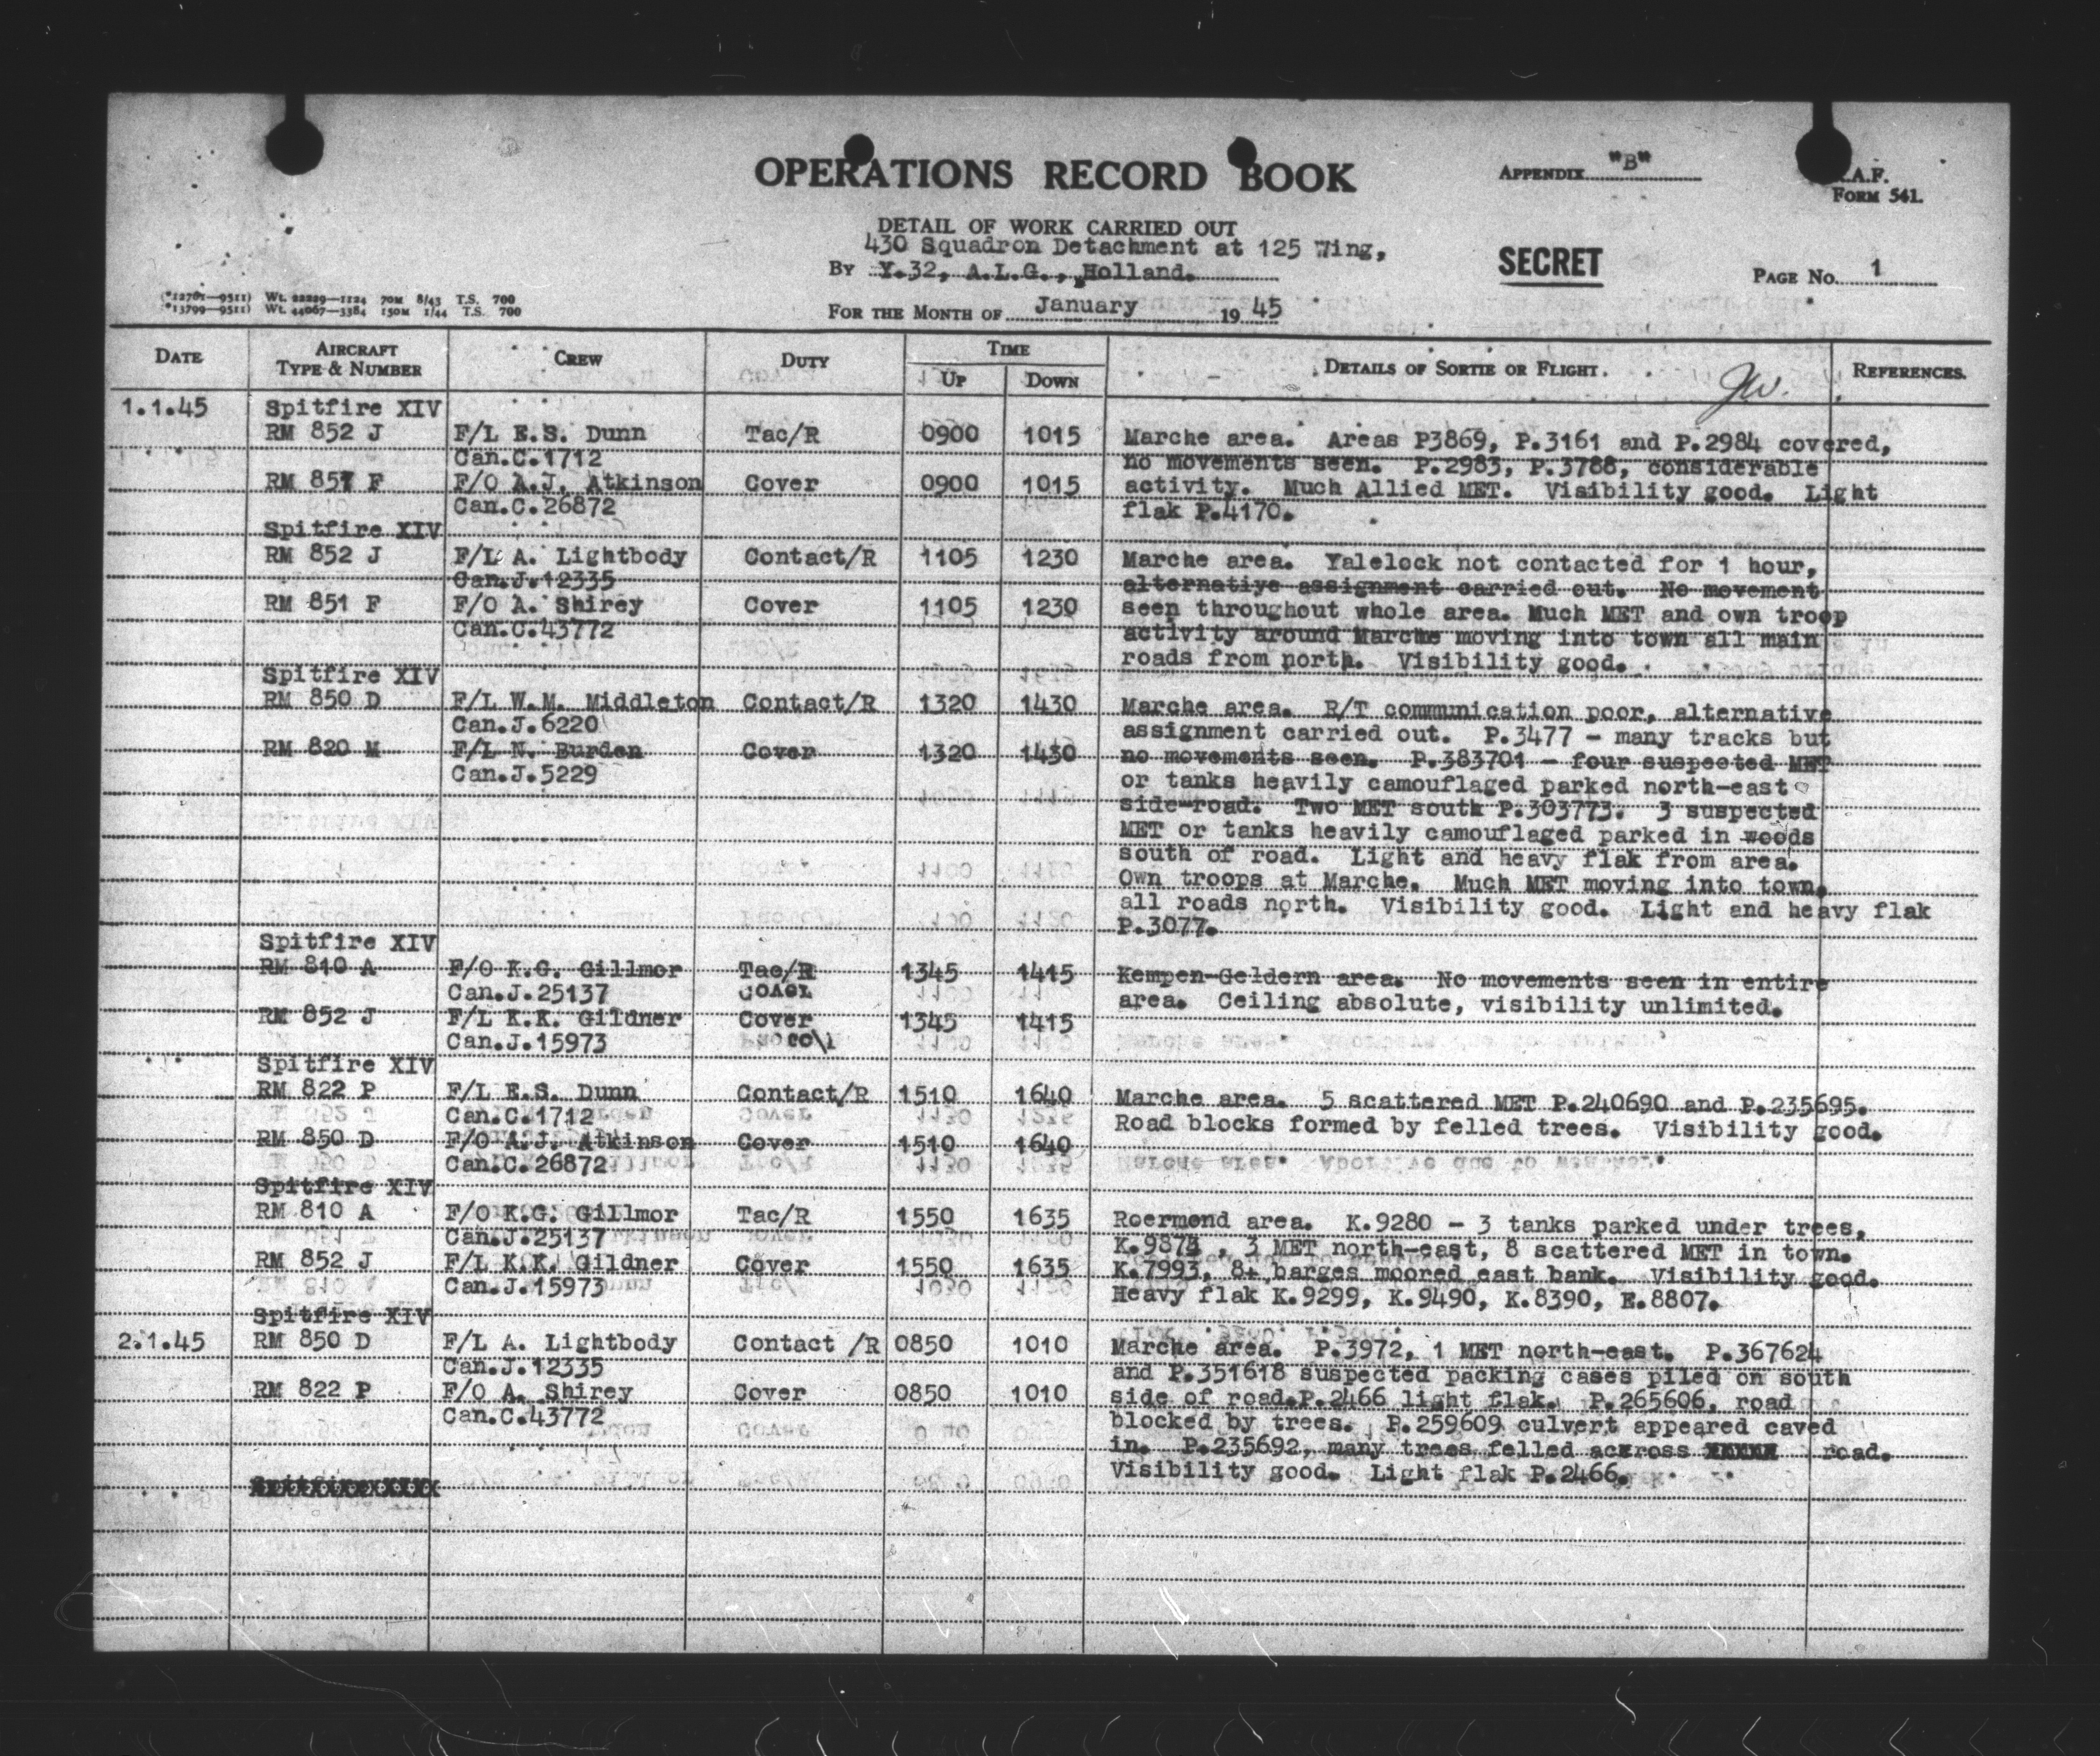 OPERATIONS RECORD BOOK
APPENDIX "B"
A.F.
FORM 541.
DETAIL OF WORK CARRIED OUT
430 Squadron Detachment at 125 Wing,
BY Y.32, A.L.G., Holland.
SECRET
PAGE No. 1
(*12761—9511) Wt. 22229—1124 70M 8/43 T.S. 700
*13799—9511) Wt. 44067—3384 150M 1/44 T.S. 700
FOR THE MONTH OF January 1945
DATE AIRCRAFT TYPE & NUMBER CREW DUTY TIME UP DOWN DETAILS OF SORTIE OR FLIGHT. REFERENCES.
1.1.45 Spitfire XIV
RM 852 J F/L E.S. Dunn Tac/R 0900 1015 Marche area. Areas P3869, P.3161 and P.2984 covered,
Can.C.1712 no movements seen. P.2983, P.3788, considerable
RM 851 F F/O A.J. Atkinson Cover 0900 1015 activity. Much Allied MET. Visibility good. Light
Can.C.26872 flak P.4170.
Spitfire XIV
RM 852 J F/L A. Lightbody Contact/R 1105 1230 Marche area. Yalelock not contacted for 1 hour,
Can.J.12335 alternative assignment carried out. No movement
RM 851 F F/O A. Shirey Cover 1105 1230 seen throughout whole area. Much MET and own troop
Can.C.43772 activity around Marche moving into town all main
roads from north. Visibility good.
Spitfire XIV
RM 850 D F/L W.M. Middleton Contact/R 1320 1430 Marche area. R/T communication poor, alternative
Can.J.6220 assignment carried out. P.3477 - many tracks but
RM 820 M F/L N. Burden Cover 1320 1430 no movements seen. P.383701 - four suspected MET
Can.J.5229 or tanks heavily camouflaged parked north-east
side-road. Two MET south P.303773. 3 suspected
MET or tanks heavily camouflaged parked in woods
south of road. Light and heavy flak from area.
Own troops at Marche. Much MET moving into town,
all roads north. Visibility good. Light and heavy flak
P.3077.
Spitfire XIV
RM 810 A F/O K.G. Gillmor Tac/R 1345 1415 Kempen-Geldern area. No movements seen in entire
Can.J.25137 area. Ceiling absolute, visibility unlimited.
RM 852 J F/L K.K. Gildner Cover 1345 1415
Can.J.15973
Spitfire XIV
RM 822 P F/L E.S. Dunn Contact/R 1510 1640 Marche area. 5 scattered MET P.240690 and P.235695.
Can.C.1712 Road blocks formed by felled trees. Visibility good.
RM 850 D F/O A.J. Atkinson Cover 1510 1640
Can.C.26872
Spitfire XIV
RM 810 A F/O K.G. Gillmor Tac/R 1550 1635 Roermond area. K.9280 - 3 tanks parked under trees,
Can.J.25137 3 MET north-east, 8 scattered MET in town.
RM 852 J F/L K.K. Gildner Cover 1550 1635 K.7993, 8+ barges moored east bank. Visibility good.
Can.J.15973 Heavy flak K.9299, K.9490, K.8390, E.8807.
Spitfire XIV
2.1.45 RM 850 D F/L A. Lightbody Contact /R 0850 1010 Marche area. P.3972, 1 MET north-east. P.367624
Can.J.12335 and P.351618 suspected packing cases piled on south
RM 822 P F/O A. Shirey Cover 0850 1010 side of road.P.2466 light flak. P.265606, road
Can.C.43772 blocked by trees. P.259609 culvert appeared caved
in. P.235692, many trees felled across road.
Visibility good. Light flak P.2466.